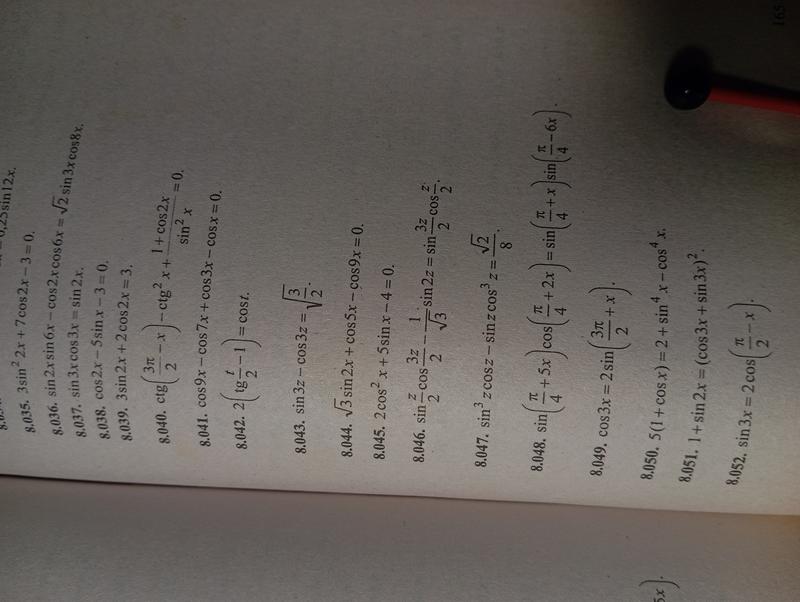 = 0,25sin12x.
8.035. 3sin² 2x + 7cos2x − 3 = 0.
8.036. sin2x sin6x − cos2x cos6x = √2 sin3x cos8x.
8.037. sin3x cos3x = sin2x.
8.038. cos2x − 5sinx − 3 = 0.
8.039. 3sin2x + 2cos2x = 3.
8.040. ctg(3π/2 − x) − ctg² x + (1 + cos2x)/(sin² x) = 0.
8.041. cos9x − cos7x + cos3x − cosx = 0.
8.042. 2(tg t/2 − 1) = cost.
8.043. sin3z − cos3z = √(3/2).
8.044. √3 sin2x + cos5x − cos9x = 0.
8.045. 2cos² x + 5sinx − 4 = 0.
8.046. sin z/2 cos 3z/2 − 1/√3 sin2z = sin 3z/2 cos z/2.
8.047. sin³ z cosz − sinz cos³ z = √2/8.
8.048. sin(π/4 + 5x) cos(π/4 + 2x) = sin(π/4 + x) sin(π/4 − 6x).
8.049. cos3x = 2sin(3π/2 + x).
8.050. 5(1 + cosx) = 2 + sin⁴ x − cos⁴ x.
8.051. 1 + sin2x = (cos3x + sin3x)².
8.052. sin3x = 2cos(π/2 − x).
165
5x).